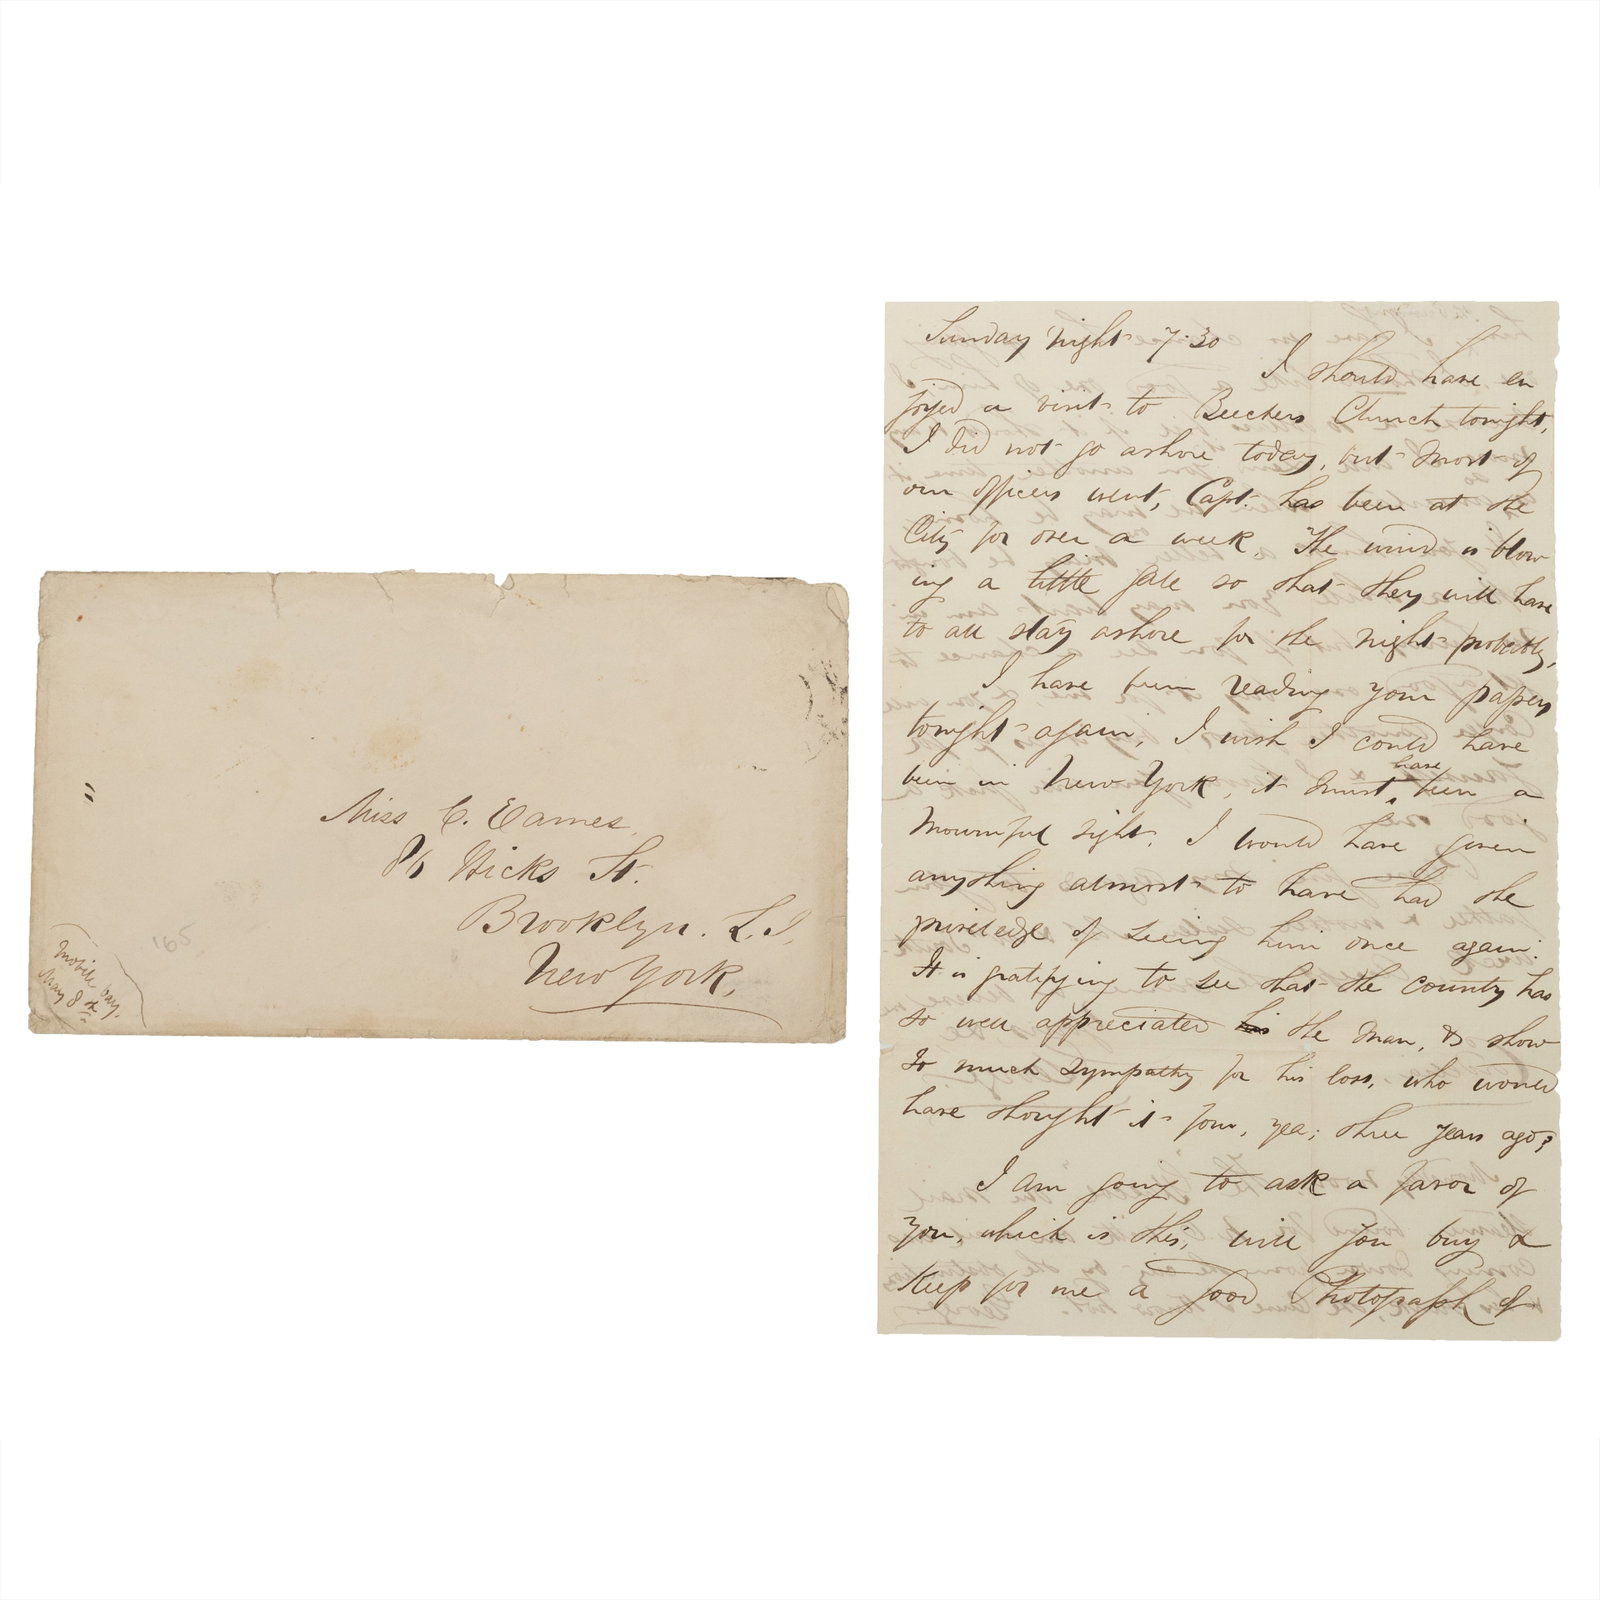 Miss C. Eames
86 Hicks St.
Brooklyn. L. I.
New York.
Mobile bay.
May 8th
165
Sunday night 7.30
I should have en
joyed a visit to Beechers Church tonight,
I did not go ashore today, but most of
our officers went, Capt. has been at the
City for over a week. The wind is blow
ing a little gale so that they will have
to all stay ashore for the night probably,
I have been reading your papers
tonight again, I wish I could have
been in New York, it must have been a
mournful sight. I would have given
anything almost to have had the
priviledge of seeing him once again.
It is gratifying to see that the country has
so well appreciated his the man, & show
so much sympathy for his loss, who would
have thought it four, yea; three years ago?
I am going to ask a favor of
you, which is this, will you buy &
Keep for me a good Photograph of